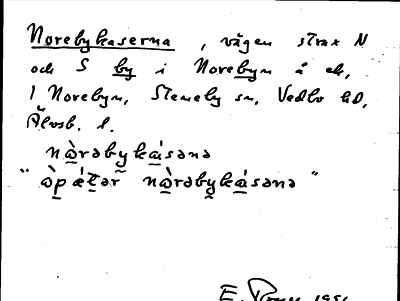 Norebykaserna, vägen strax N
och S by i Norebyn å ek,
1 Norebyn, Steneby sn, Vedbo hd,
Älvsb. l.
nɷ̀rəbykása​nə
"ɷ̀p ǽtər nɷ̀rəbykásənə"
E.